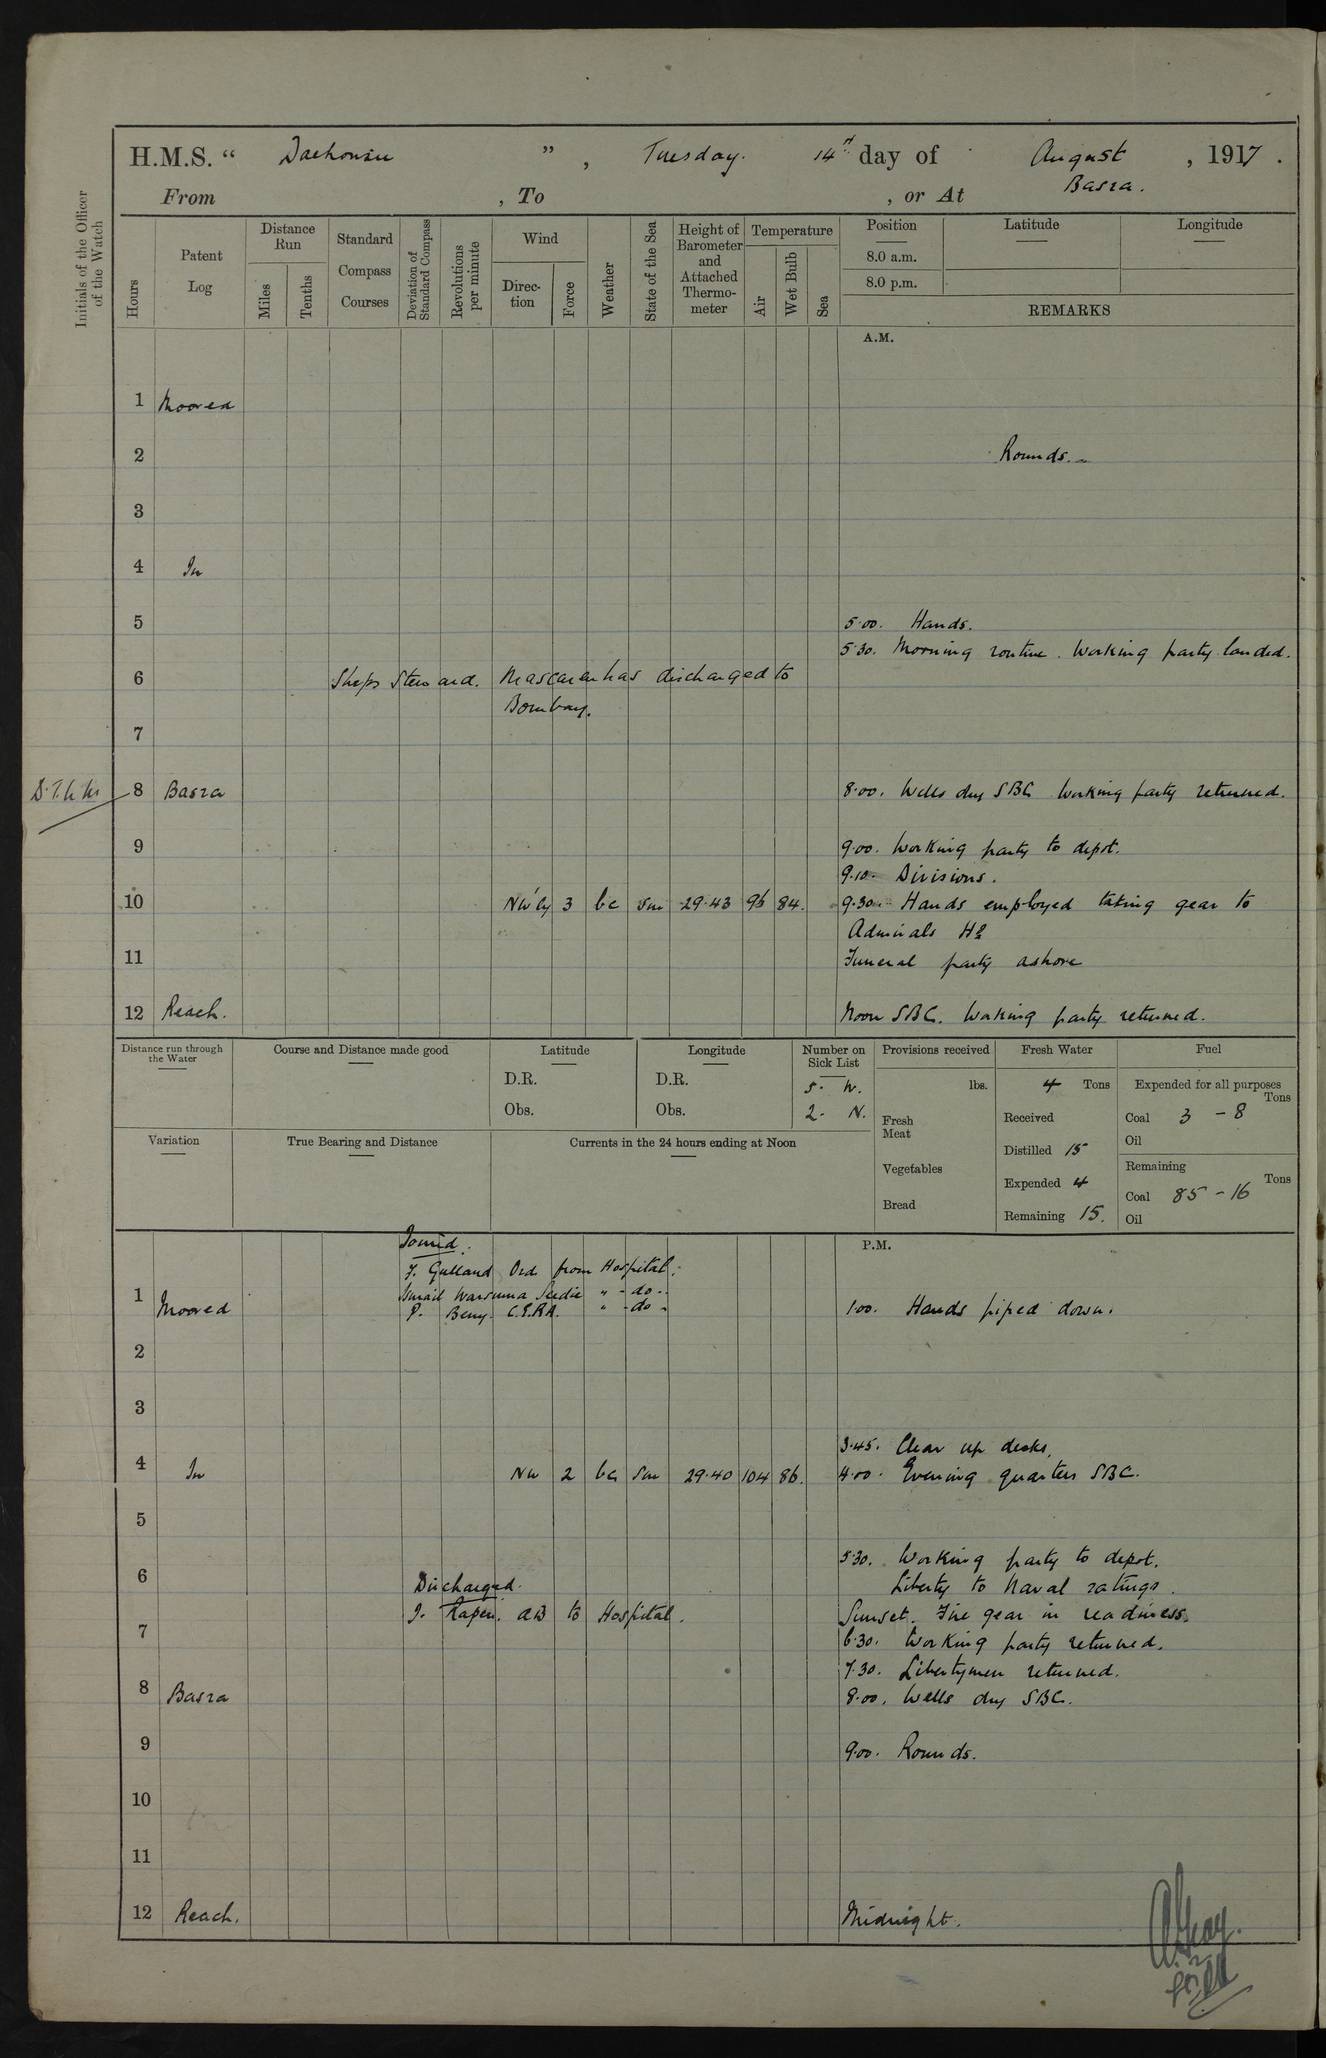 H.M.S. " Dalhousie ", Tuesday. 14th day of August, 1917.
From , To , or At Basra.
Initials of the Officer of the Watch
Hours
Patent Log
Distance Run
Miles
Tenths
Standard Compass Courses
Deviation of Standard Compass
Revolutions per minute
Wind
Direction
Force
Weather
State of the Sea
Height of Barometer and Attached Thermometer
Temperature
Air
Wet Bulb
Sea
Position
8.0 a.m.
8.0 p.m.
Latitude
Longitude
REMARKS
A.M.
1 Moored
2 Rounds.
3
4 In
5 5.00. Hands.
5.30. Morning routine. Working party landed.
6 Ships Steward. Mascarenhas discharged to
Bombay.
7
8 Basra 8.00. Wells dry SBC Working party returned.
9 9.00. Working party to depot.
9.10. Divisions.
10 NW'ly 3 bc sm 29.43 96 84. 9.30. Hands employed taking gear to
Admirals HQ
11 Funeral party ashore
12 Reach. Noon SBC. Working party returned.
Distance run through the Water
Course and Distance made good
Latitude
D.R.
Obs.
Longitude
D.R.
Obs.
Number on Sick List
5. W.
2. N.
Provisions received
lbs.
Fresh Meat
Vegetables
Bread
Fresh Water
4 Tons
Received
Distilled 15
Expended 4
Remaining 15.
Fuel
Expended for all purposes
Tons
Coal 3 - 8
Oil
Remaining
Tons
Coal 85 - 16
Oil
Variation
True Bearing and Distance
Currents in the 24 hours ending at Noon
P.M.
Joined.
F. Gulland Ord from Hospital.
Ismail Warsuma Seedie " - do -
1 Moored P. Berry. C.E.R.A. " - do - 1.00. Hands piped down.
2
3
3.45. Clear up decks.
4 In NW 2 bc sm 29.40 104 86. 4.00. Evening quarters SBC.
5
5.30. Working party to depot.
6 Discharged. Liberty to Naval ratings.
J. AB to Hospital. Sunset. Fire gear in readiness.
7 6.30. Working party returned.
7.30. Libertymen returned.
8 Basra 8.00. Wells dry SBC.
9 9.00. Rounds.
10
11
12 Reach. Midnight.